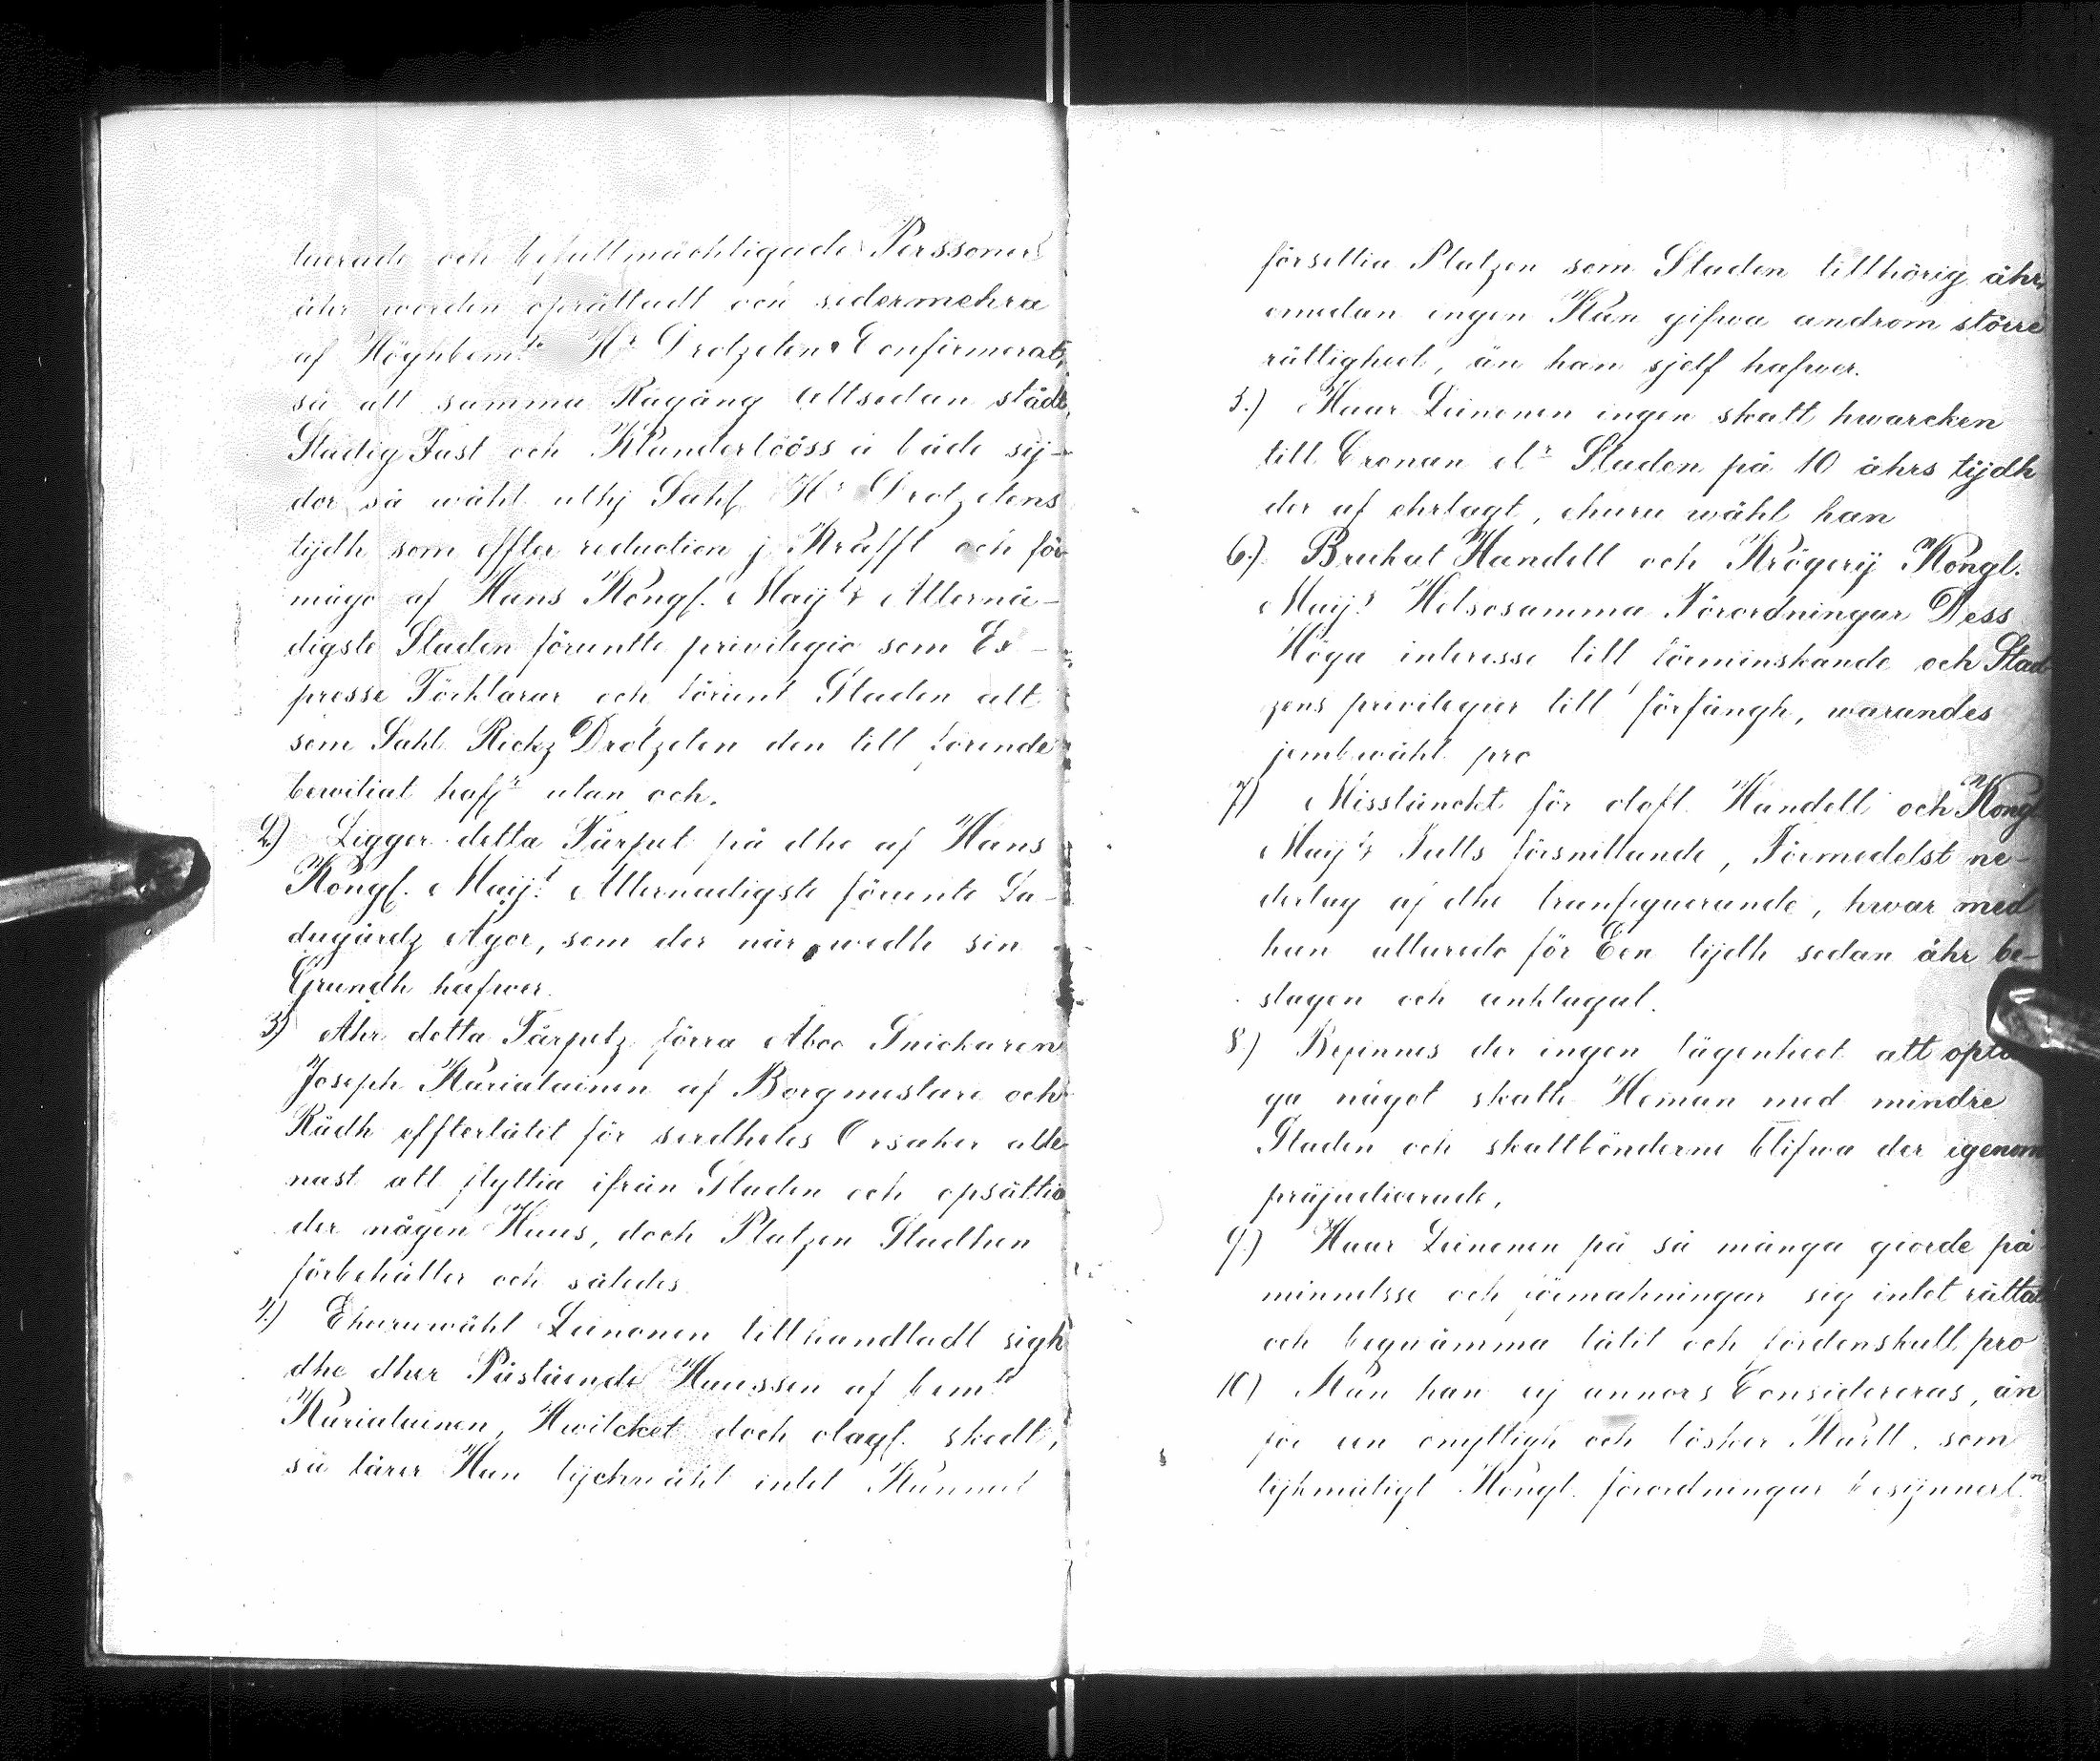 tuerade och befullmächtigade Perssoner
ähr worden oprättadt och sidermehra
af Höghbem.te Hr Drotzeten Confirmerat,
så att samma Rågång altsedan stådt
Stadig Fast och Klanderlööss å både sij-
dor så wähl uthj Sahl. Hr Drotzetens
tijdh som effter reduction j Krafft och för
mågo af Hans Kongl. Maij:tz Allernå-
digste Staden föruntte privilegio som Ex-
presse Förklarar och förunt Staden alt
som Sahl. Rickz Drotzeten den till förende
bewiliat haffr utan och.
2.) Ligger detta Tårpet på dhe af Hans
Kongl. Maij:t Allernådigste förunte La-
dugårdz Ägor, som der när wedh sin
Grundh hafwer.
3) Ähr detta Tårpetz förra Åboo Snickaren
Joseph Karialainen af Borgmestare och
Rådh effterlåtit för serdheles Orsaker alle
nast att flyttia ifrån Staden och opsättia
der någon Huus, doch Platzen Stadhen
förbehåller och således
4.) Ehuruwähl Leinonen tillhandladt sigh
dhe dher Påståënde Huussen af bem.te
Karialainen, Hwilcket doch olagl. skedt,
så lärer Han lijchwähl intet Kunnat
försettia Platzen som Staden tillhörig ähr,
emedan ingen Kan gifwa androm större
rättighed, än han sjelf hafwer.
5.) Haar Leinonen ingen skatt hwarcken
till Cronan elr Staden på 10 åhrs tijdh
der af ehrlagt, ehuru wähl han
6.) Brukat Handell och Krögerij Kongl.
Maij:tz Helsosamma Förordningar Dess
Höga interesse till förminskande och Stad
zens privilegier till förfångh, warandes
jembwähl pro
7) Misstänckt för olofl. Handell och Kongl
Maij:tz Tulls försnillande, Förmedelst ne-
derlag af dhe tranfiquerande, hwar med
han allaredo för Een tijdh sedan ähr be-
slagen och anklagat.
8.) Befinnes der ingen lägenheet att opta
ga något skatte Heman med mindre
Staden och skattbönderne blifwa der igenom
präjudicerade,
9.) Haar Leinonen på så många giorde på
minnelsse och förmahningar sig intet rättat
och beqnämma låtit och fördenskull pro
10) Kan han ej annors Considereras, än
för een onyttigh och lösker Karll, som
lijkmätigt Kongl. förordningar besijnnerln